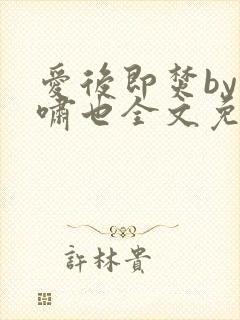 愛後即焚by
嘯也全文免
許林貴